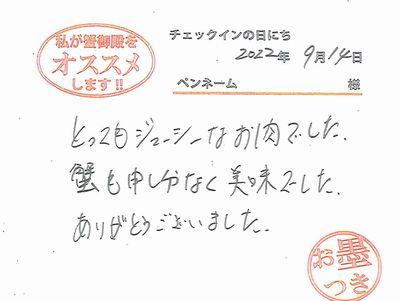 私が蟹御殿を
オススメ
します!!
チェックインの日にち
2022年 9月14日
ペンネーム 様
とってもジューシーなお肉でした。
蟹も申し分なく美味でした。
ありがとうございました。
お墨
つき